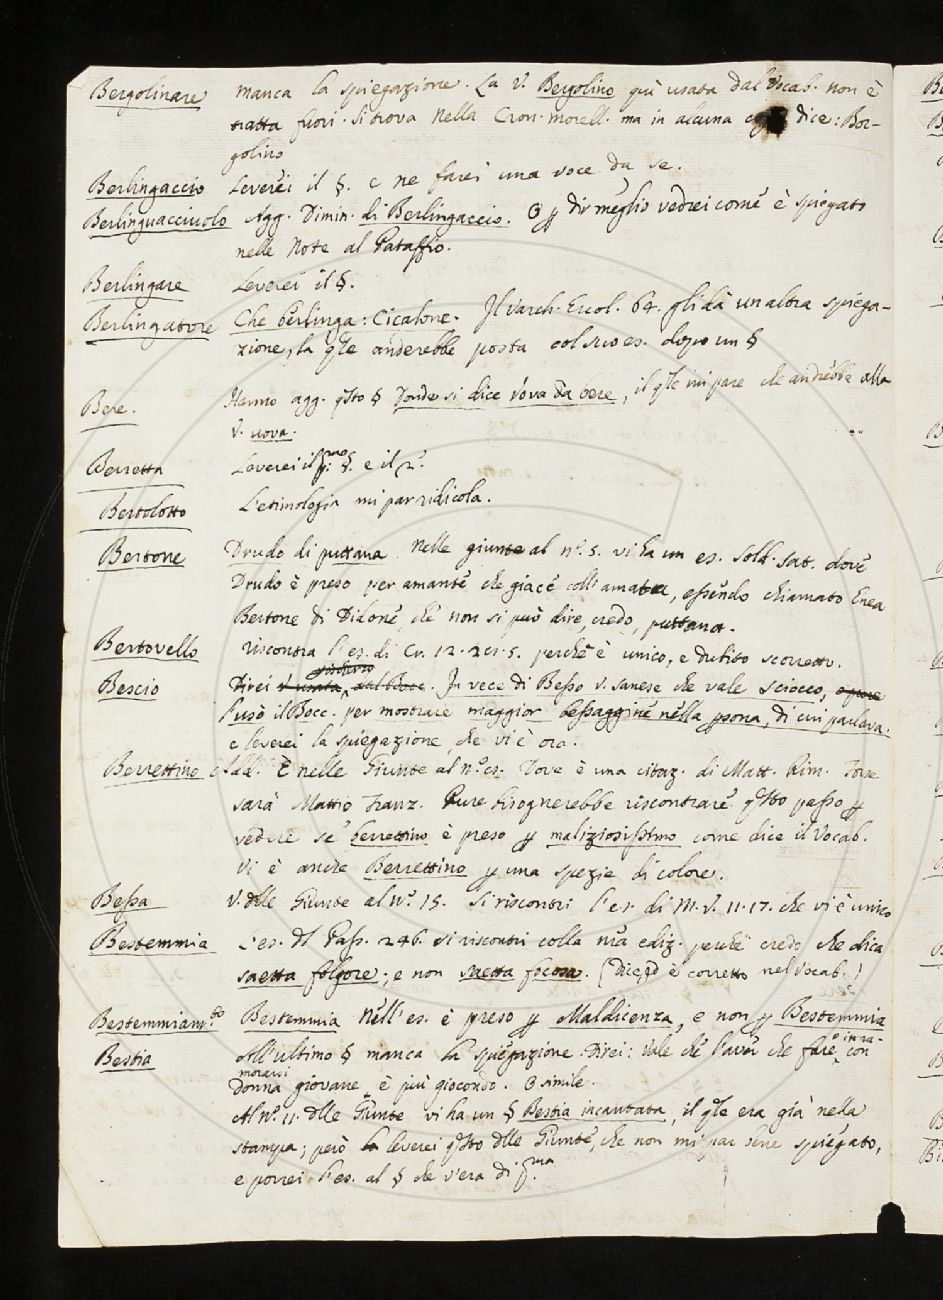 Bergolinare manca la spiegazione. La V. Bergolino quì usata dal Vocab. non è
tratta fuori. Si trova nella Cron. Morell. ma in alcuna dice: Bor-
golino
Berlingaccio Leverei il §. e ne farei una voce da se.
Berlinguacciuolo Agg. Dimin. di Berlingaccio. O p dir meglio vedrei come è spiegato
nelle Note al Pataffio.
Berlingare Leverei il §.
Berlingatore Che berlinga: Cicalone. Il Varch. Ercol. 64. gli dà un altra spiega-
zione, la qle anderebbe posta col suo es. dopo un §
Bere. Hanno agg. qsto § Donde si dice Uova da bere, il qle mi pare che andrebbe alla
V. uova.
Berretta Leverei il pmo §. e il 2.
Bertolotto L'etimologia mi par ridicola.
Bertone Drudo di puttana. Nelle giunte al n.º 5. vi ha un es. Sold. Sat. dove
Drudo è preso per amante che giace coll' amata, essendo chiamato Enea
Bertone di Didone, che non si può dire, credo, puttana.
Bertovello riscontra l'es. di Cr. 12. 21. 5. perchè è unico, e dubito scorretto.
Bescio Direi V. usata dal Bocc. In vece di Besso v. sanese che vale sciocco,
l'usò il Bocc. per mostrare maggior bessaggine nella psona, di cui parlava.
e leverei la spiegazione, che vi è ora.
Berrettino add. È nelle Giunte al n.º es. Dove è una citaz. di Matt. Rim. Forse
sarà Mattio Franz. Pure bisognerebbe riscontrare qsto passo p
vedere se berrettino è preso p maliziosissimo come dice il Vocab.
Vi è anche Berrettino p una spezie di colore.
Bessa V. dlle Giunte al nº. 15. Si riscontri l'es. di M. V. 11. 17. che vi è unico
Bestemmia L'es. dl Pass. 246. si riscontri colla mia ediz. perchè credo che dica
saetta folgore; e non saetta focosa. (Diced è corretto nel Vocab.)
Bestemmiam.to Bestemmia Nell' es. è preso p Maldicenza, e non p Bestemmia
Bestia All' ultimo § manca la spiegazione. Direi: Vale che l'aver che fare, o inna-
morarsi con
donna giovane, è più giocondo. O simile.
Al nº. 11. dlle Giunte vi ha un § Bestia incantata, il qle era già nella
stampa; però leverei qsto dlle Giunte, che non mi par bene spiegato,
e porrei l'es. al § che v'era di pma.